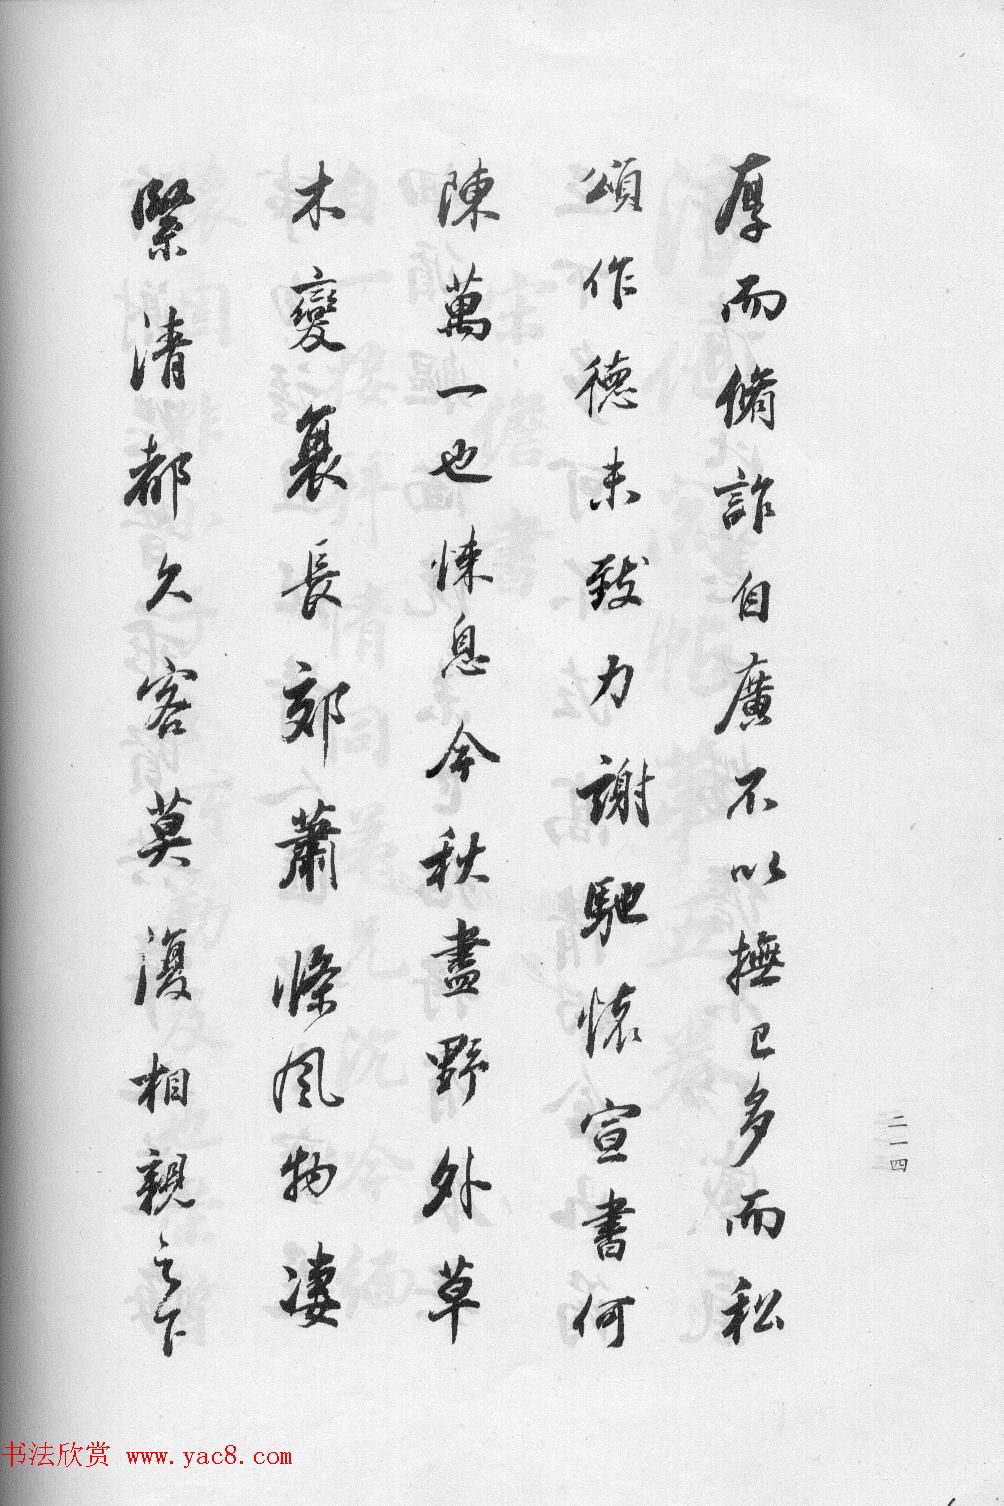 厚而脩詐自廣不以撫己多而私
頌作德未致力謝馳懷宣書何
陳萬一也悚息今秋盡野外草
木變裏長郊蕭條風物凄
緊清都久客莫復相親之下
二一四
书法欣赏 www.yac8.com